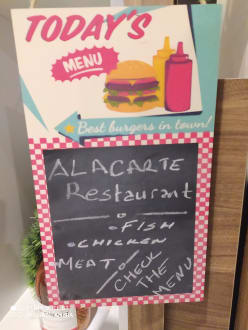 TODAY'S
MENU
Best burgers in town!
ALACARTE
Restaurant
FISH
CHICKEN
MEAT
CHECK
THE
MENU